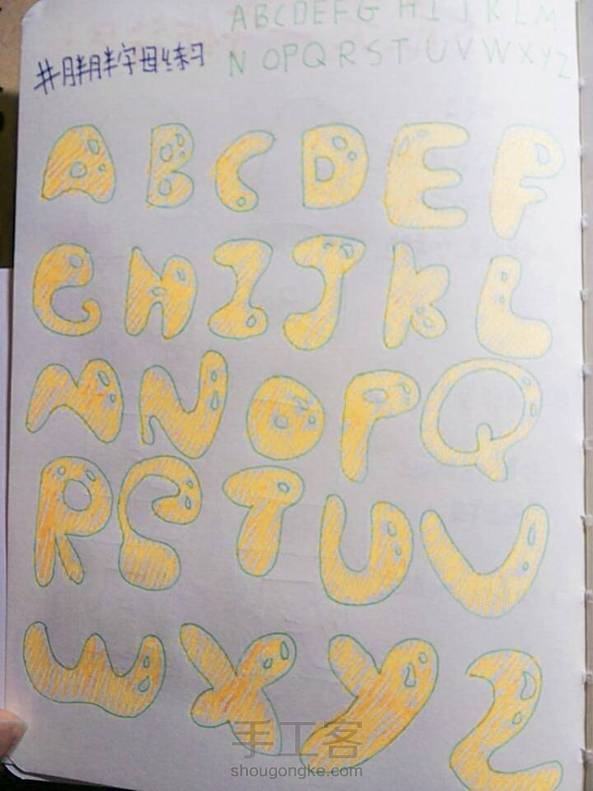 ABCDEFG HIJKLM
#胖胖字母练习 N OPQRST UVWXYZ
A B C D E F
G H I J K L
M N O P Q
R S T U V
W X Y Z
手工客
shougongke.com